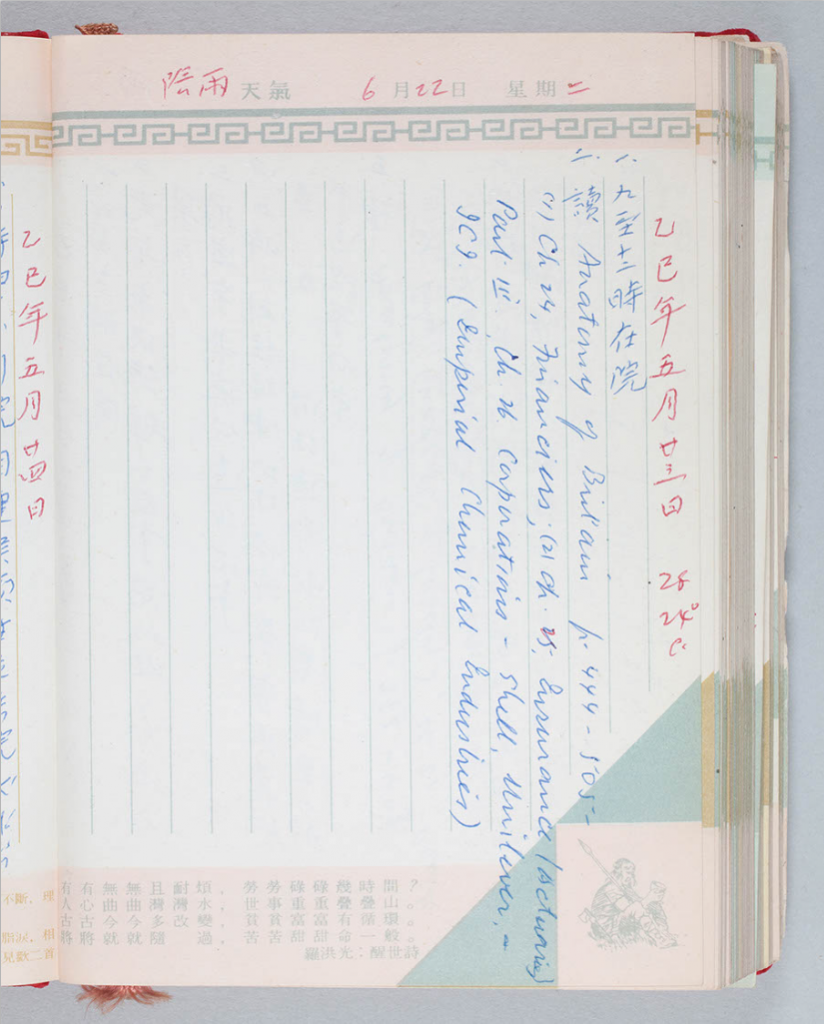 陰雨 天氣 6月22日 星期二
乙巳年五月廿三日 28 24°C.
一. 九至十二時在院
二. 讀 Anatomy of Britain p. 444 - 505 -
(1) Ch 24, Financiers; (2) Ch. 25, Insurance (Actuaries)
Part III, Ch. 26. Corporations - Shell, Unilever, -
ICI. (Imperial Chemical Industries)
有有無無且耐煩,勞勞碌碌幾時閒?
人心曲曲灣灣水,世事重重疊疊山。
古古今今多改變,貧貧富富有循環。
將將就就隨過,苦苦甜甜命一般。
羅洪光:醒世詩
乙巳年五月廿四日
不斷,理
脂淚,相
見歡二首